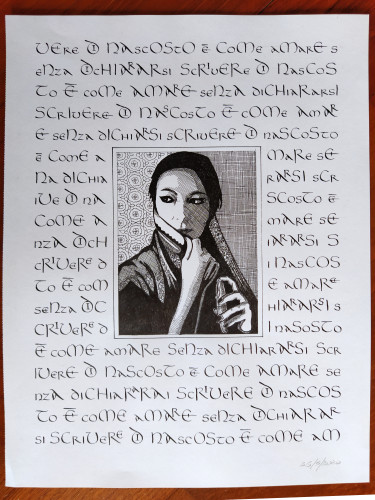 VERE DI NASCOSTO È COME AMARE S
ENZA DICHIARARSI SCRIVERE DI NASCOS
TO È COME AMARE SENZA DICHIARARSI
SCRIVERE DI NASCOSTO È COME AMAR
E SENZA DICHIARARSI SCRIVERE DI NASCOSTO
È COME A MARE SE
NA DICHIA RARSI SCR
IVE DI NA SCOSTO È
COME A MARE SE
NZA DICH IARARSI S
CRIVERE D I NASCOS
TO È COM E AMARE
SENZA DIC HIARARSI S
CRIVERE D I NASOSTO
È COME AMARE SENZA DICHIARARSI SCR
IVERE DI NASCOSTO È COME AMARE SE
NZA DICHIARARAI SCRIVERE DI NASCOS
TO È COME AMARE SENZA DICHIARAR
SI SCRIVERE DI NASCOSTO È COME AM